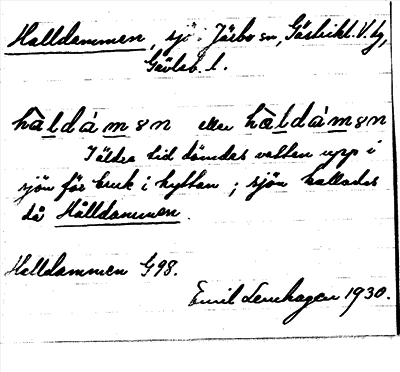 Halldammen, sjö i Järbo sn, Gästrikl. V. tg,
Gävleb. l.
hàldámən eller hæ̀ldámən
I äldre tid dämdes vatten upp i
sjön för bruk i hyttan; sjön kallades
då Hålldammen.
Halldammen G98.
Emil Lenhagen 1930.